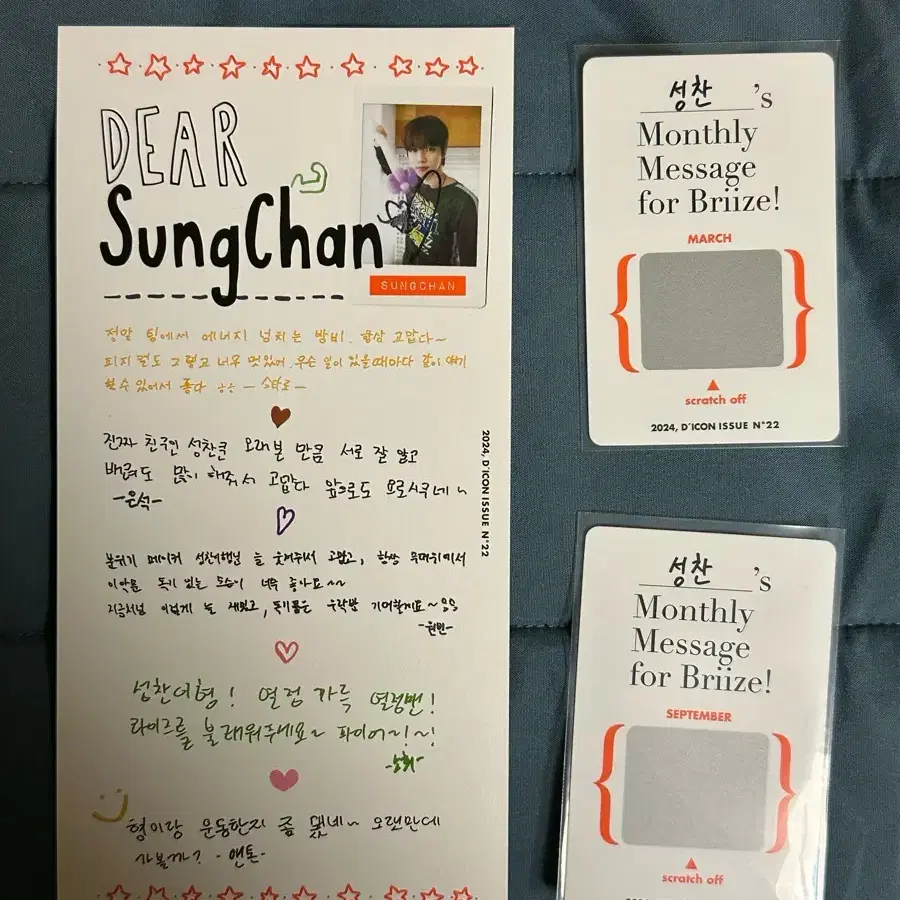 DEAR
SungChan
SUNGCHAN
정말 팀에서 에너지 넘치는 방비. 항상 고맙다~
피지컬도 그렇고 너무 멋있어. 무슨 일이 있을때마다 같이 얘기
할 수 있어서 좋다 ㅎㅎ -쇼타로-
진짜 친구인 성찬쿤 오래본 만큼 서로 잘 알고
배려도 많이 해줘서 고맙다 앞으로도 요로시쿠네~
-은석-
분위기 메이커 성찬이형님 늘 웃어주셔서 고맙고, 항상 무대위에서
음악을 즐기 있는 모습이 너무 좋아요~~
지금처럼 이렇게 늘
-원빈-
성찬이형! 열정 가득 열정맨!
라이즈를 불태워주세요~ 파이어~!~!
-소희-
형이랑 운동한지 좀 됐네~ 오랜만에
가볼까? -앤톤-
2024, D'ICON ISSUE N°22
성찬's
Monthly
Message
for Briize!
MARCH
scratch off
2024, D'ICON ISSUE N°22
성찬's
Monthly
Message
for Briize!
SEPTEMBER
scratch off